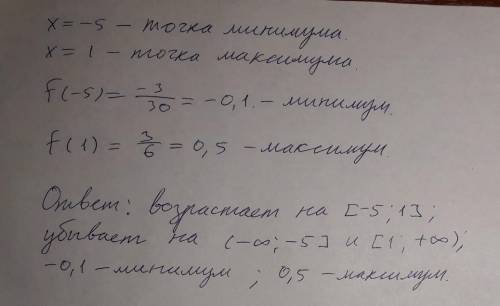 x = -5 – точка минимума.
x = 1 – точка максимума.
f(-5) = -3/30 = -0,1 – минимум.
f(1) = 3/6 = 0,5 – максимум.
Ответ: возрастает на [-5; 1];
убывает на (-∞; -5] и [1; +∞);
-0,1 – минимум ; 0,5 – максимум.